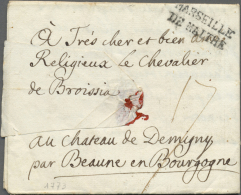 MARSEILLE
DE MALTHE
à Trés cher et bien
Religieux le Chevalier
de Broissia
au Chateau de Demigny
par Beaune en Bourgogne